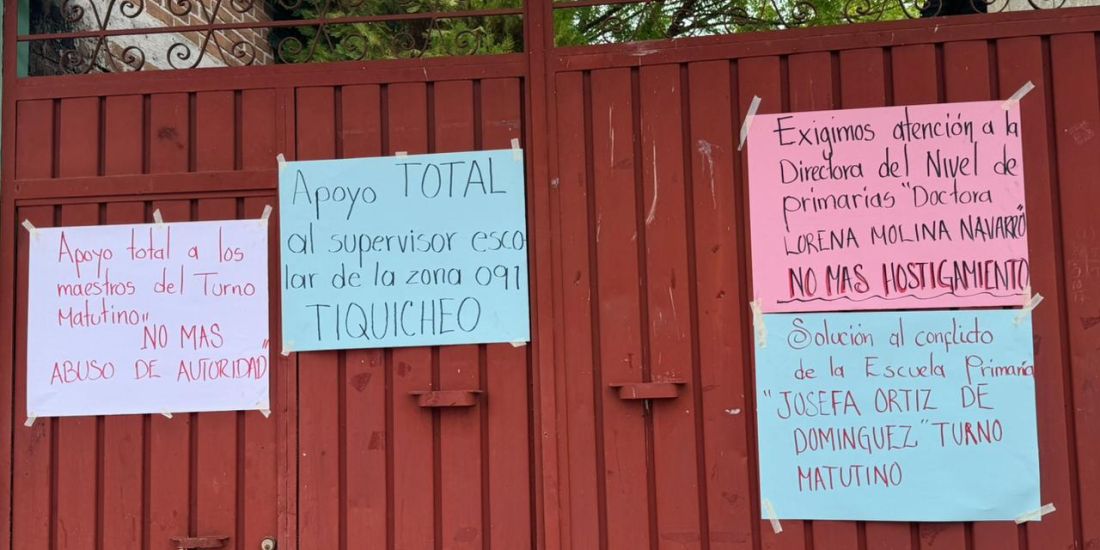 Apoyo total a los
maestros del Turno
Matutino"
"NO MAS
ABUSO DE AUTORIDAD"
Apoyo TOTAL
al supervisor esco
lar de la zona 091
TIQUICHEO
Exigimos atención a la
Directora del Nivel de
primarias "Doctora
LORENA MOLINA NAVARRO"
NO MAS HOSTIGAMIENTO
Solución al conflicto
de la Escuela Primaria
"JOSEFA ORTIZ DE
DOMINGUEZ" TURNO
MATUTINO